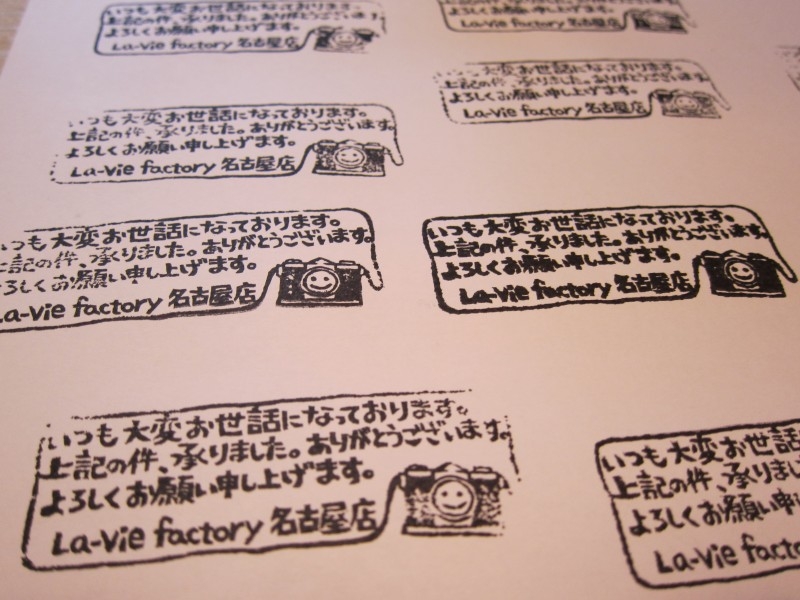 いつも大変お世話になっております。
上記の件、承りました。ありがとうございます。
よろしくお願い申し上げます。
La-Vie factory 名古屋店
上記の件、承りました。ありがとうございます。
よろしくお願い申し上げます。
La-Vie factory 名古屋店
いつも大変お世話になっております。
上記の件、承りました。ありがとうございます。
よろしくお願い申し上げます。
La-Vie factory 名古屋店
いつも大変お世話になっております。
上記の件、承りました。ありがとうございます。
よろしくお願い申し上げます。
La-Vie factory 名古屋店
いつも大変お世話になっております。
上記の件、承りました。ありがとうございます。
よろしくお願い申し上げます。
La-Vie factory 名古屋店
いつも大変お世話になっております。
上記の件、承りました。ありがとうございます。
よろしくお願い申し上げます。
La-Vie factory 名古屋店
いつも大変お世話になっております。
上記の件、承りました。ありがとうございます。
よろしくお願い申し上げます。
La-Vie factory 名古屋店
いつも大変お世話
上記の件、承りまし
よろしくお願い申
La-Vie facto